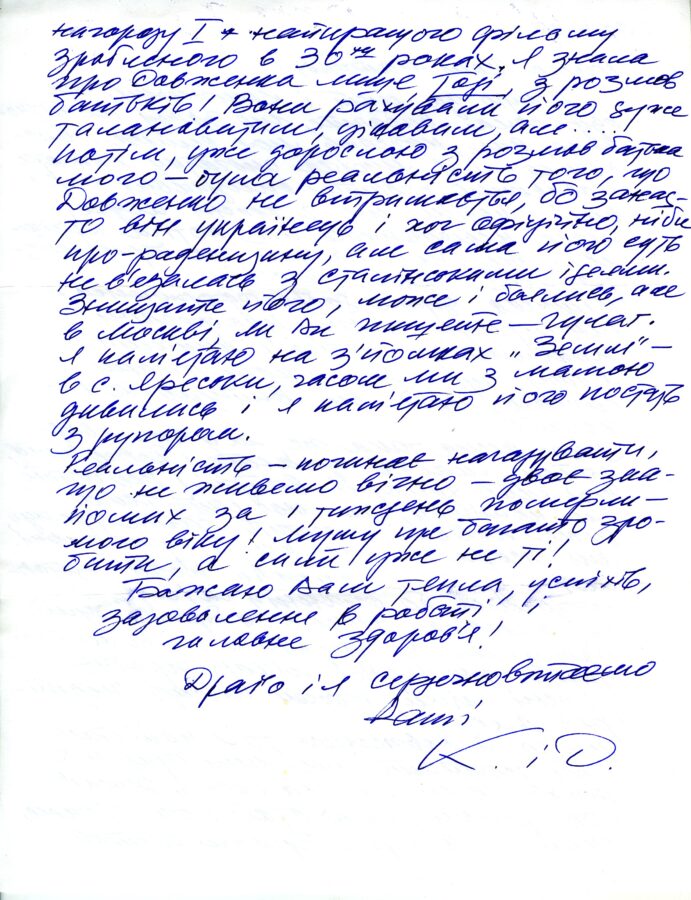 нагороду I * найкращого фільму
зробленого в 30тих роках. Я знала
про Довженка лише, тоді, з розмов
батьків! Вони рахували його дуже
талановитим, цікавим, але.....
потім, уже дорослою з розмов батька
мого – була реальність того, що
Довженко не витримається, бо занад-
то він українець і хоч офіційно, ніби
про-радянщину, але сама його суть
не в'язалась з сталінськими ідеями.
Знищати його, може і боялись, але
в Москві, як Ви пишете – гулаг.
Я пам'ятаю на з'йомках „Землі" –
в с. Яреськи, часом ми з мамою
дивились і я пам'ятаю його постать
з рупором.
Реальність – починає нагадувати,
що не живемо вічно – двоє зна-
йомих за 1 тиждень померли –
мого віку! Мушу ще багато зро-
бити, а сили уже не ті!
Бажаю Вам тепла, успіхів,
задоволення в роботі, і
головне здоров'я!
Драґо і я сердечно вітаємо
Ваші
К. і D.